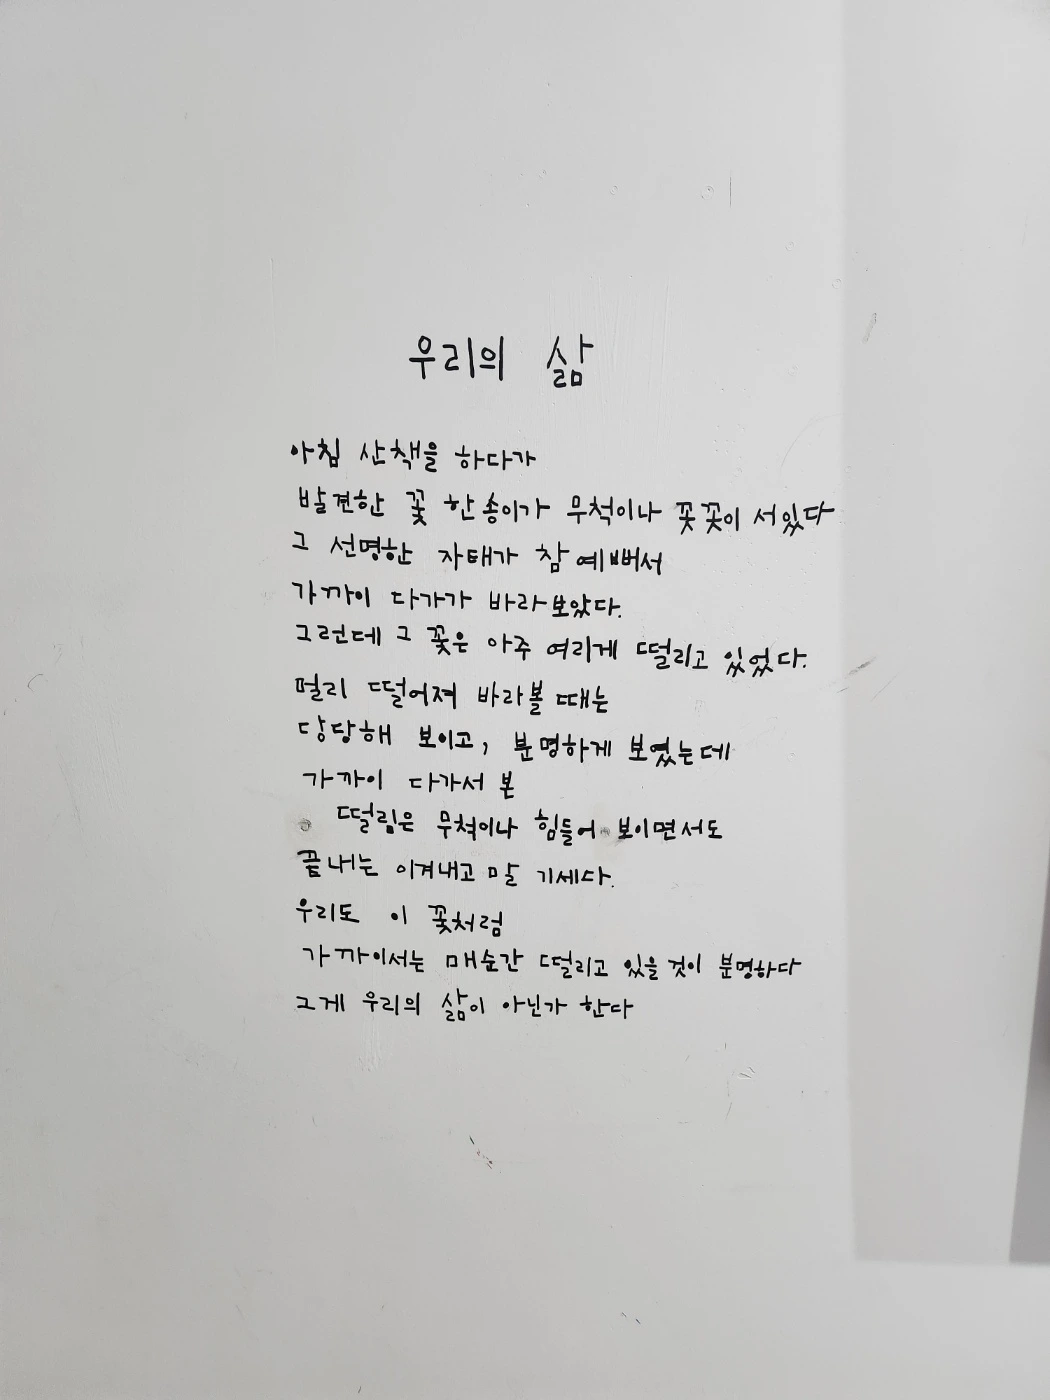 우리의 삶
아침 산책을 하다가
발견한 꽃 한 송이가 무척이나 꼿꼿이 서있다
그 선명한 자태가 참 예뻐서
가까이 다가가 바라보았다.
그런데 그 꽃은 아주 여리게 떨리고 있었다.
멀리 떨어져 바라볼 때는
당당해 보이고, 분명하게 보였는데
가까이 다가서 본
떨림은 무척이나 힘들어 보이면서도
끝내는 이겨내고 말 기세다.
우리도 이 꽃처럼
가까이서는 매순간 떨리고 있을 것이 분명하다
그게 우리의 삶이 아닌가 한다